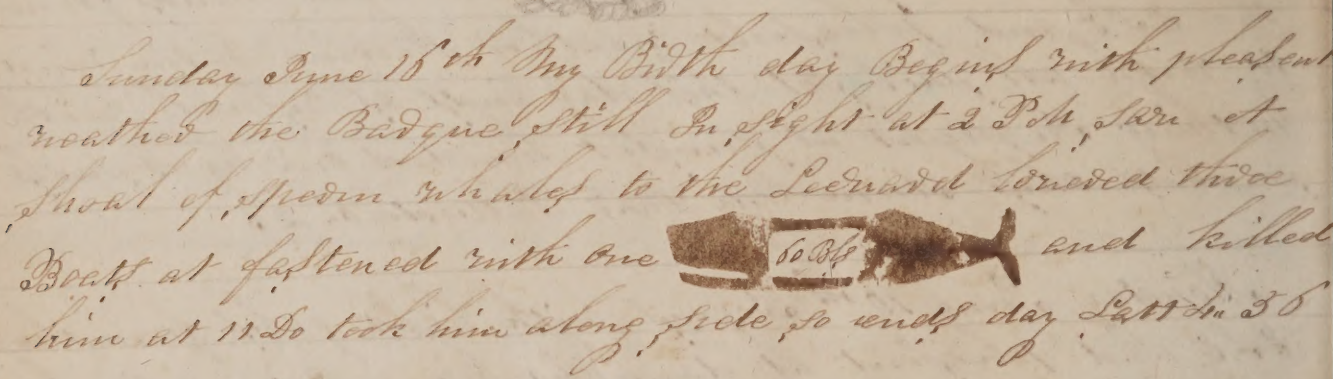 Sunday June 16th My Birth day Begins with pleasent
weather the Barque still In sight at 2 PM saw A
shoal of sperm whales to the Leeward lowered three
Boats at fastened with one 60 Bls and killed
him at 11 Do took him along side so ends day Latt 4.. 36